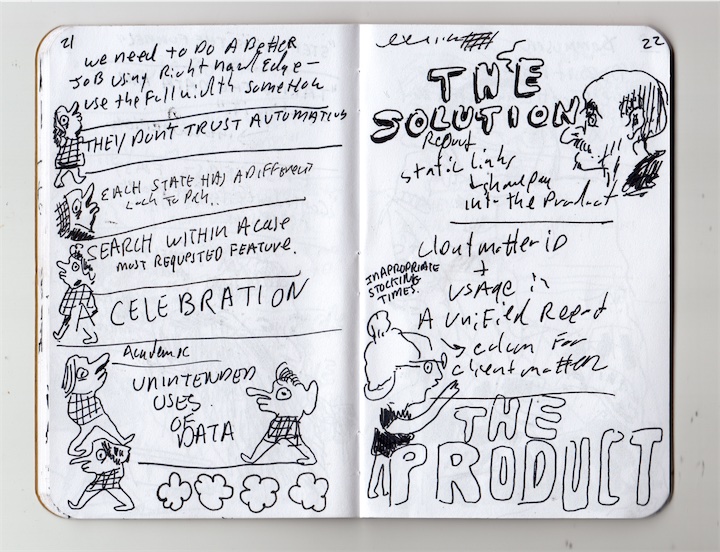 21
WE NEED TO DO A BETTER
JOB USING RIGHT HAND EDGE -
USE THE FULL WIDTH SOMEHOW
THEY DON'T TRUST AUTOMATION
EACH STATE HAS A DIFFERENT
SEARCH WITHIN A CASE
MOST REQUESTED FEATURE.
CELEBRATION
Academic
UNINTENDED
USES
OF
DATA
22
THE
SOLUTION
Report
Static Links
into the Product
INAPROPRIATE
STOCKING
TIMES.
Client matter ID
+
USAGE in
A UNIFIED Report
column FOR
client matter
THE
PRODUCT